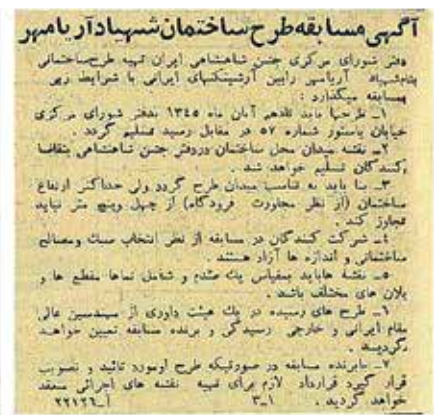 آگهی مسابقه طرح ساختمان شهیاد آریامهر
دفتر شورای مرکزی جشن شاهنشاهی ایران تهیه طرح ساختمانی
بنام شهیاد آریامهر رابین آرشیتکتهای ایرانی با شرایط زیر
بمسابقه میگذارد :
۱ـ طرحها باید تا دهم آبان ماه ۱۳۴۵ بدفتر شورای مرکزی
خیابان پاستور شماره ۵۷ در مقابل رسید تسلیم گردد .
۲ـ نقشه میدان محل ساختمان در دفتر جشن شاهنشاهی بتقاضا
کنندگان تسلیم خواهد شد .
۳ـ بنا باید به تناسب میدان طرح گردد ولی حداکثر ارتفاع
ساختمان (از نظر مجاورت فرودگاه) از چهل و پنج متر نباید
تجاوز کند .
۴ـ شرکت کنندگان در مسابقه از نظر انتخاب سبک ومصالح
ساختمانی و اندازه ها آزاد هستند .
۵ـ نقشه ها باید بمقیاس یک صدم و شامل نماها مقطع ها و
پلان های مختلف باشد .
۶ـ طرح های رسیده در یک هیئت داوری از مهندسین عالی
مقام ایرانی و خارجی رسیدگی و برنده مسابقه تعیین خواهد
گردید .
۷ـ با برنده مسابقه در صورتیکه طرح او مورد تائید و تصویب
قرار گیرد قرارداد لازم برای تهیه نقشه های اجرائی منعقد
خواهد گردید . ۳ـ۱ آـ۲۲۱۲۶